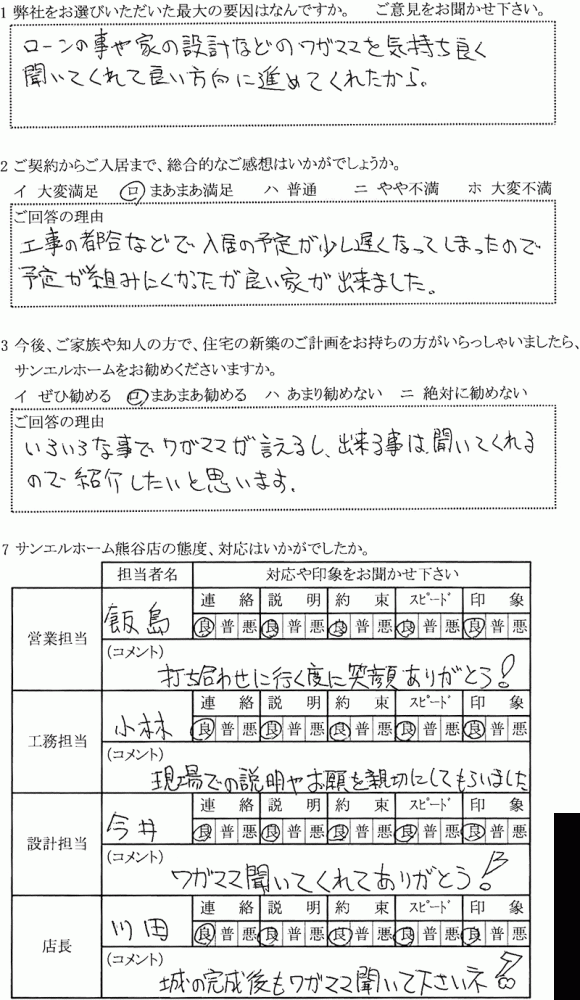 1 弊社をお選びいただいた最大の要因はなんですか。 ご意見をお聞かせ下さい。
ローンの事や家の設計などのワガママを気持ち良く
聞いてくれて良い方向に進めてくれたから。
2 ご契約からご入居まで、総合的なご感想はいかがでしょうか。
イ 大変満足 ロ まあまあ満足 ハ 普通 ニ やや不満 ホ 大変不満
ご回答の理由
工事の都合などで入居の予定が少し遅くなってしまったので
予定が組みにくかったが良い家が出来ました。
3 今後、ご家族や知人の方で、住宅の新築のご計画をお持ちの方がいらっしゃいましたら、
サンエルホームをお勧めくださいますか。
イ ぜひ勧める ロ まあまあ勧める ハ あまり勧めない ニ 絶対に勧めない
ご回答の理由
いろいろな事でワガママが言えるし、出来る事は聞いてくれる
ので紹介したいと思います。
7 サンエルホーム熊谷店の態度、対応はいかがでしたか。
担当者名 対応や印象をお聞かせ下さい
営業担当 飯島 連絡 説明 約束 スピード 印象
良 普 悪 良 普 悪 良 普 悪 良 普 悪 良 普 悪
(コメント)
打ち合わせに行く度に笑顔ありがとう!
工務担当 小林 連絡 説明 約束 スピード 印象
良 普 悪 良 普 悪 良 普 悪 良 普 悪 良 普 悪
(コメント)
現場での説明やお願を親切にしてもらいました
設計担当 今井 連絡 説明 約束 スピード 印象
良 普 悪 良 普 悪 良 普 悪 良 普 悪 良 普 悪
(コメント)
ワガママ聞いてくれてありがとう!!
店長 川田 連絡 説明 約束 スピード 印象
良 普 悪 良 普 悪 良 普 悪 良 普 悪 良 普 悪
(コメント)
城の完成後もワガママ聞いて下さいネ!!